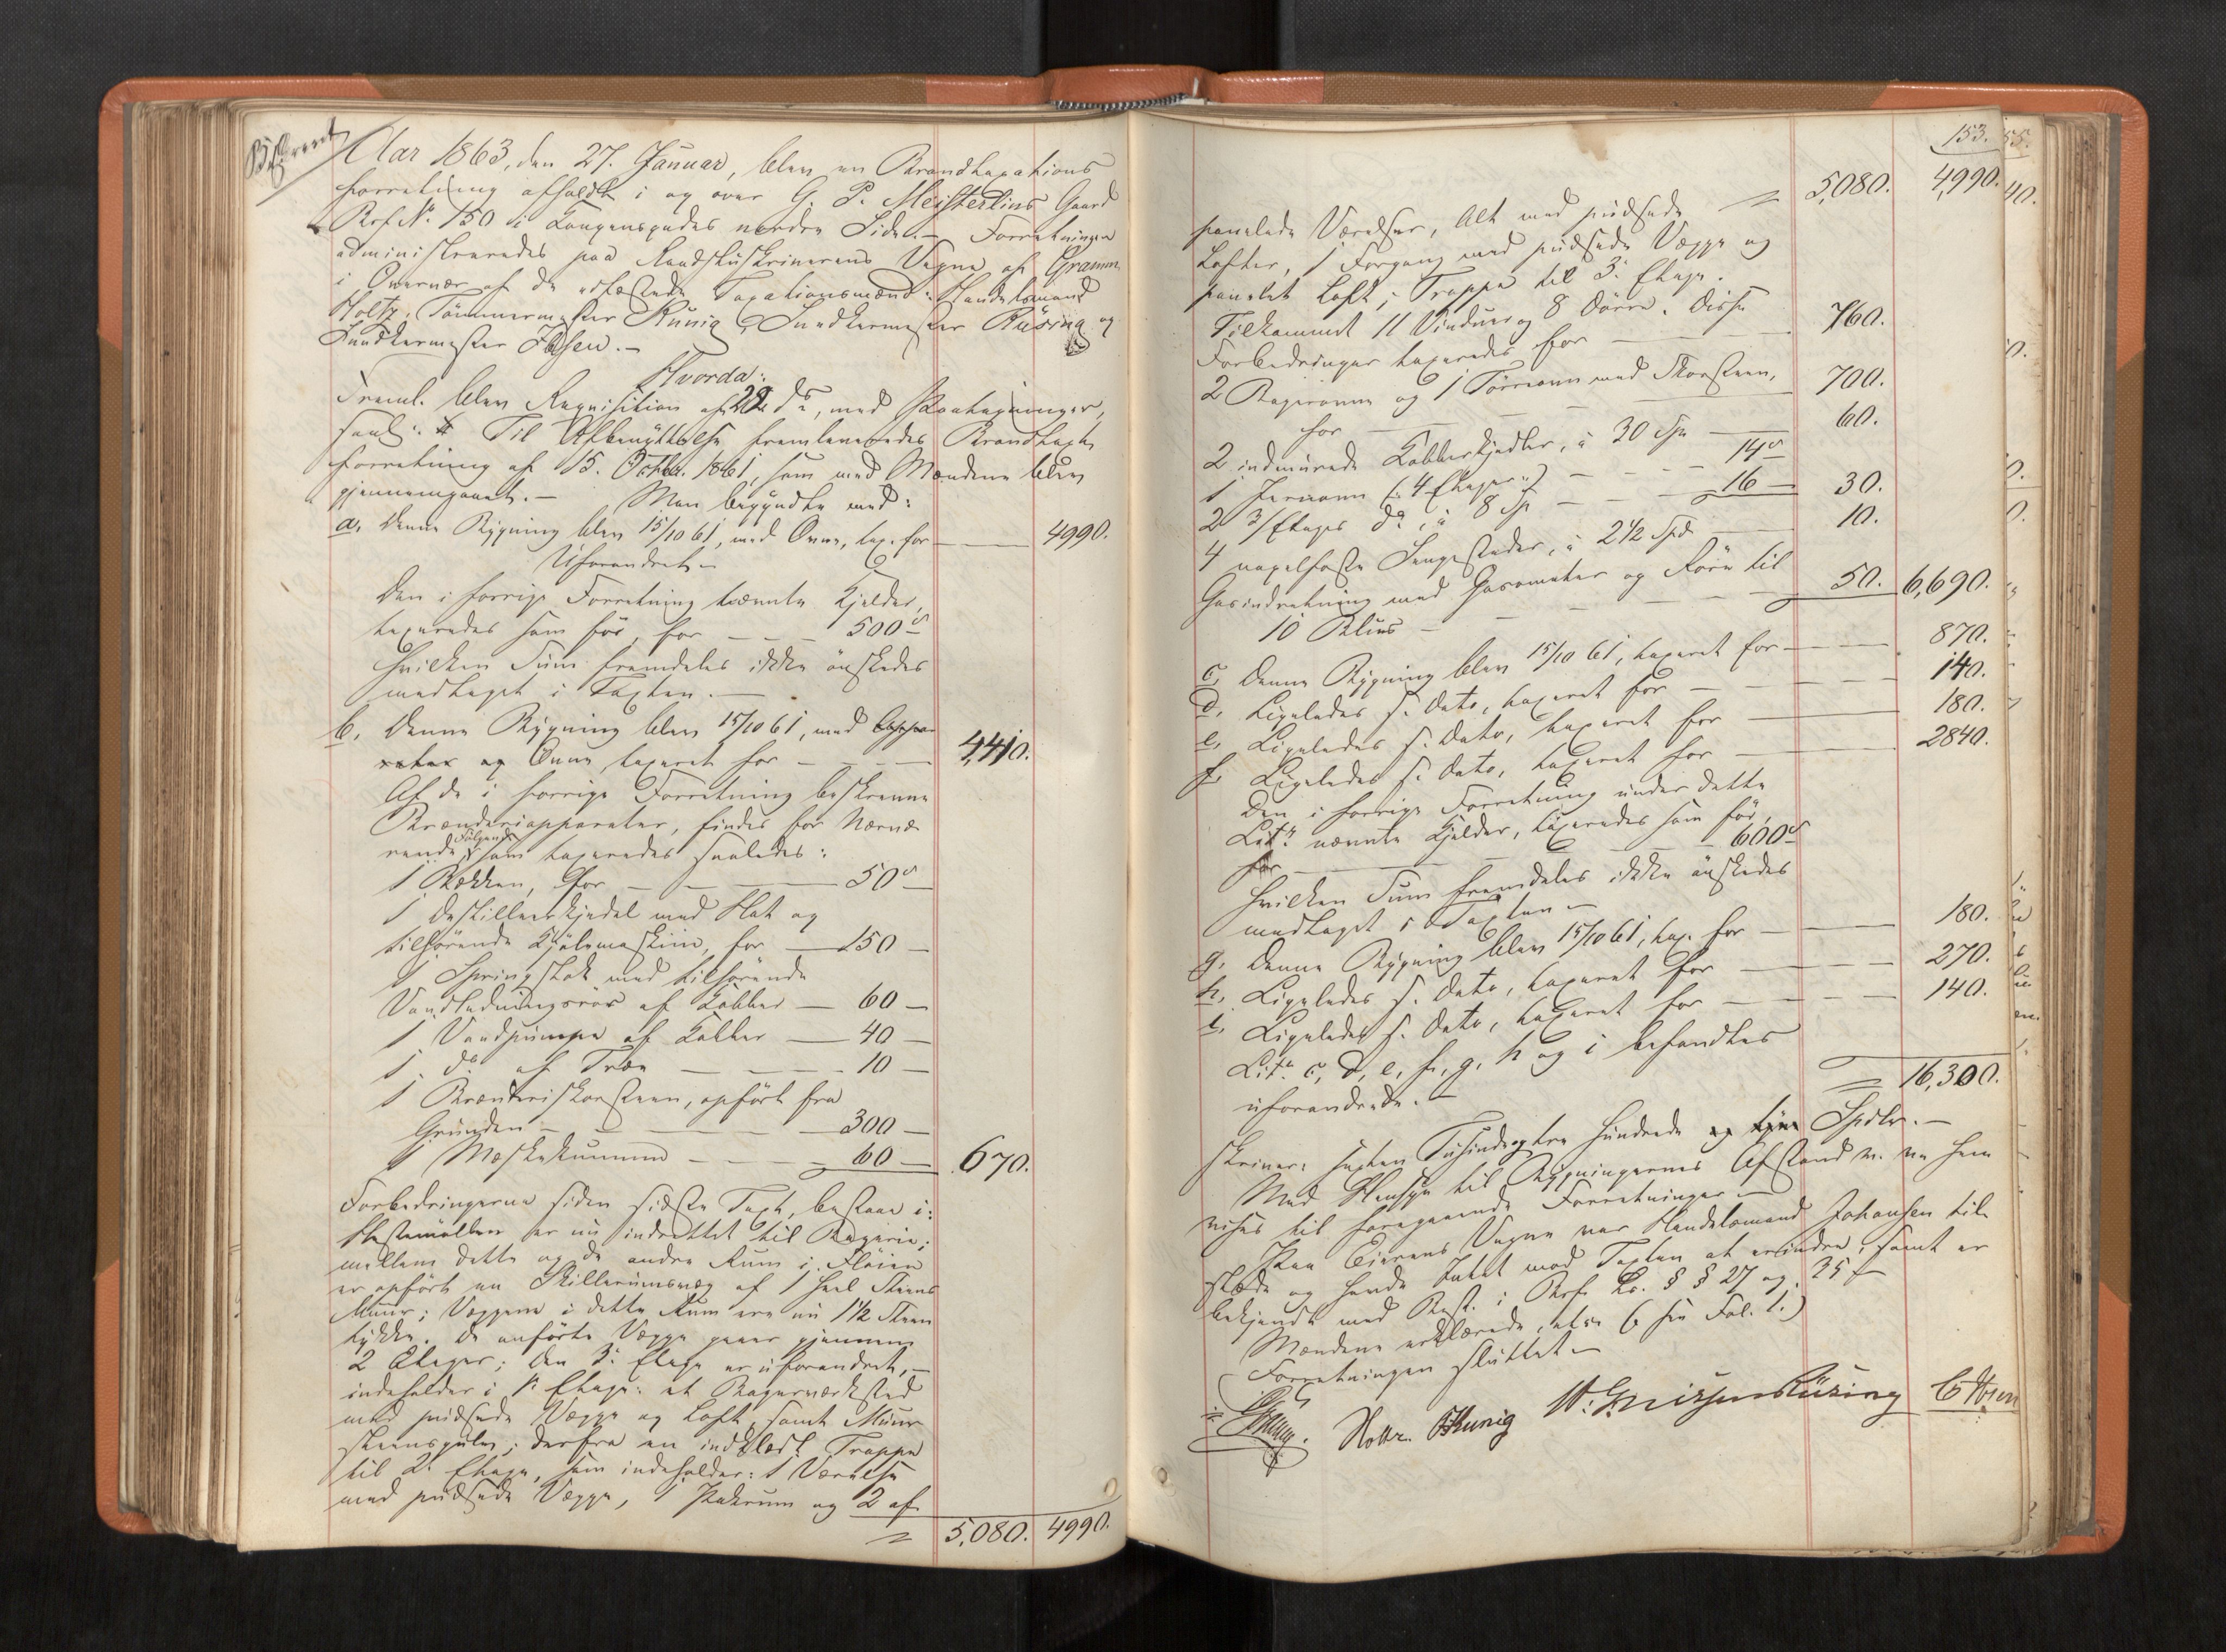 Aar 1863, den 27. Januar, blev en Brandtaxations
forretning afholdt i og over G. P. Meisterlins Gaard
Brf. No. 150 i Kongensgades nordre Side. – Forretningen
administreredes paa Raadstuskriverens Vegne af Gramm
i Overvær af de edfæstede Taxationsmænd: Handelsmand
Holtz, Tømmermester Kunig, Snedkermester Rüsing og
Snedkermester Ibsen. –
Hvorda:
Freml. blev Requisition af 22 ds., med Paategninger,
saal: Til Afbenyttelse fremlagdes Brandtaxt
forretning af 15. Octbr. 1861, som med Mændene blev
gjennemgaaet. – Man begyndte med:
a. Denne Bygning blev 15/10 61, med Ovne, tax. for — 4990.
Uforandret. –
Den i forrige Forretning nævnte Kjelder,
taxeredes som før, for — 500
hvilken Sum fremdeles ikke ønskedes
medtaget i Taxten. –
b. Denne Bygning blev 15/10 61, med Appa-
rater og Ovne, taxeret for — 4,410.
Af de i forrige Forretning beskrevne
Brænderiapparater, findes for Nærvæ-
rende Følgende, som taxeredes saaledes:
1 Bækken, for — 50
1 Destilleerkjedel med Hat og
tilhørende Kjølemaskine, for — 150 –
1 Springstok med tilhørende
Vandledningsrør af Kobber — 60 –
1 Vandpumpe af Kobber — 40 –
1 do. af Træ — 10 –
1 Brænderiskorsteen, opført fra
Grunden — 300 –
1 Mæskekumme — 60 — 670.
Forbedringerne siden sidste Taxt, bestaae i:
Hestemøllen er nu indrettet til Bageri;
mellem dette og de andre Rum i Fløien
er opført en Skillerumsvæg af 1 heel Steens
Muur; Væggene i dette Rum ere nu 1 1/2 Steen
tykke. De anførte Vægge gaaer gjennem
2 Etager; den 3. Etage er uforandret, –
indeholder i 1. Etage: et Bagerværksted
med pudsede Vægge og Loft, samt Muur-
steensgulv; derfra en indklædt Trappe
til 2. Etage, som indeholder: 1 Værelse
med pudsede Vægge, 1 Pakrum og 2 af-
5,080. 4990.
153.
5,080. 4,990.
panelede Værelser, Alt med pudsede
Lofter, 1 Forgang med pudsede Vægge og
panelet Loft; Trappe til 3. Etage.
Tilkommet 11 Vinduer og 8 Dørre. Disse
Forbedringer taxeredes for — 760.
2 Bagerovne og 1 Tørreovn med Skorsteen,
for — 700.
2 indmurede Kobberkjedler, à 30 Sp — 60.
1 Jernovn (: 4 Etager:) — 14
2 3/Etages do., à 8 Sp — 16 — 30.
4 nagelfaste Sengesteder, à 2 1/2 Spd — 10.
Gasindretning med Gasometer og Rører til
10 Blus — 50. 6,690.
c. Denne Bygning blev 15/10 61, taxeret for — 870.
d. Ligeledes s. Dato, taxeret for — 140.
e. Ligeledes s. Dato, taxeret for — 180.
f. Ligeledes s. Dato, taxeret for — 2840.
Den i forrige Forretning under dette
Litr. nævnte Kjelder, taxeredes som før,
for — 600
hvilken Sum fremdeles ikke ønskedes
medtaget i Taxten –
g. Denne Bygning blev 15/10 61, tax. for — 180.
h. Ligeledes s. Dato, taxeret for — 270.
i. Ligeledes s. Dato, taxeret for — 140.
Litr. c, d, e, f, g, h og i befandtes
uforandrede. –
16,300.
skriver: sexten Tusinde tre Hundrede Spdlr. –
Med Hensyn til Bygningernes Afstand m. m. hen-
vises til foregaaende Forretninger –
Paa Eierens Vegne var Handelsmand Johansen til-
stede og havde Intet mod Taxten at erindre, samt er
bekjendt med Best. i Brf. L. § § 27 og 35 –
Mændene erklærede, etc. (see Fol. 1.)
Forretningen sluttet –
Gramm. Holtz. Kunig Rüsing C Ibsen